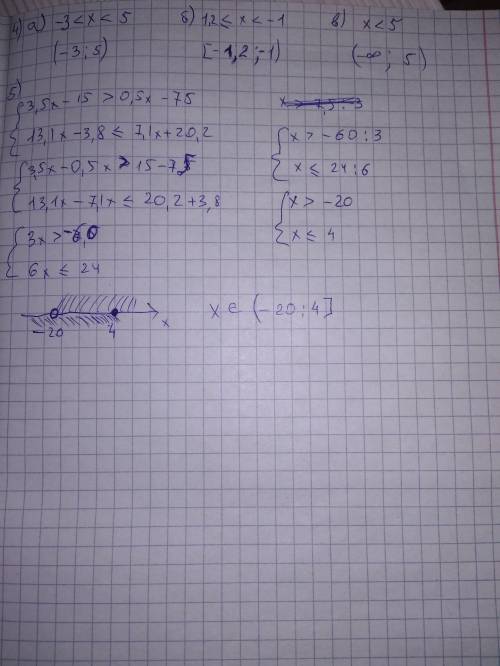 4) а) -3 < x < 5 б) 1,2 ≤ x < -1 в) x < 5
(-3 ; 5) [-1,2 ; -1) (-∞ ; 5)
5)
3,5x - 15 > 0,5x - 75
13,1x - 3,8 ≤ 7,1x + 20,2
3,5x - 0,5x > 15 - 75
13,1x - 7,1x ≤ 20,2 + 3,8
3x > -60
6x ≤ 24
x > -60 : 3
x ≤ 24 : 6
x > -20
x ≤ 4
-20 4 x
x ∈ (-20 ; 4]